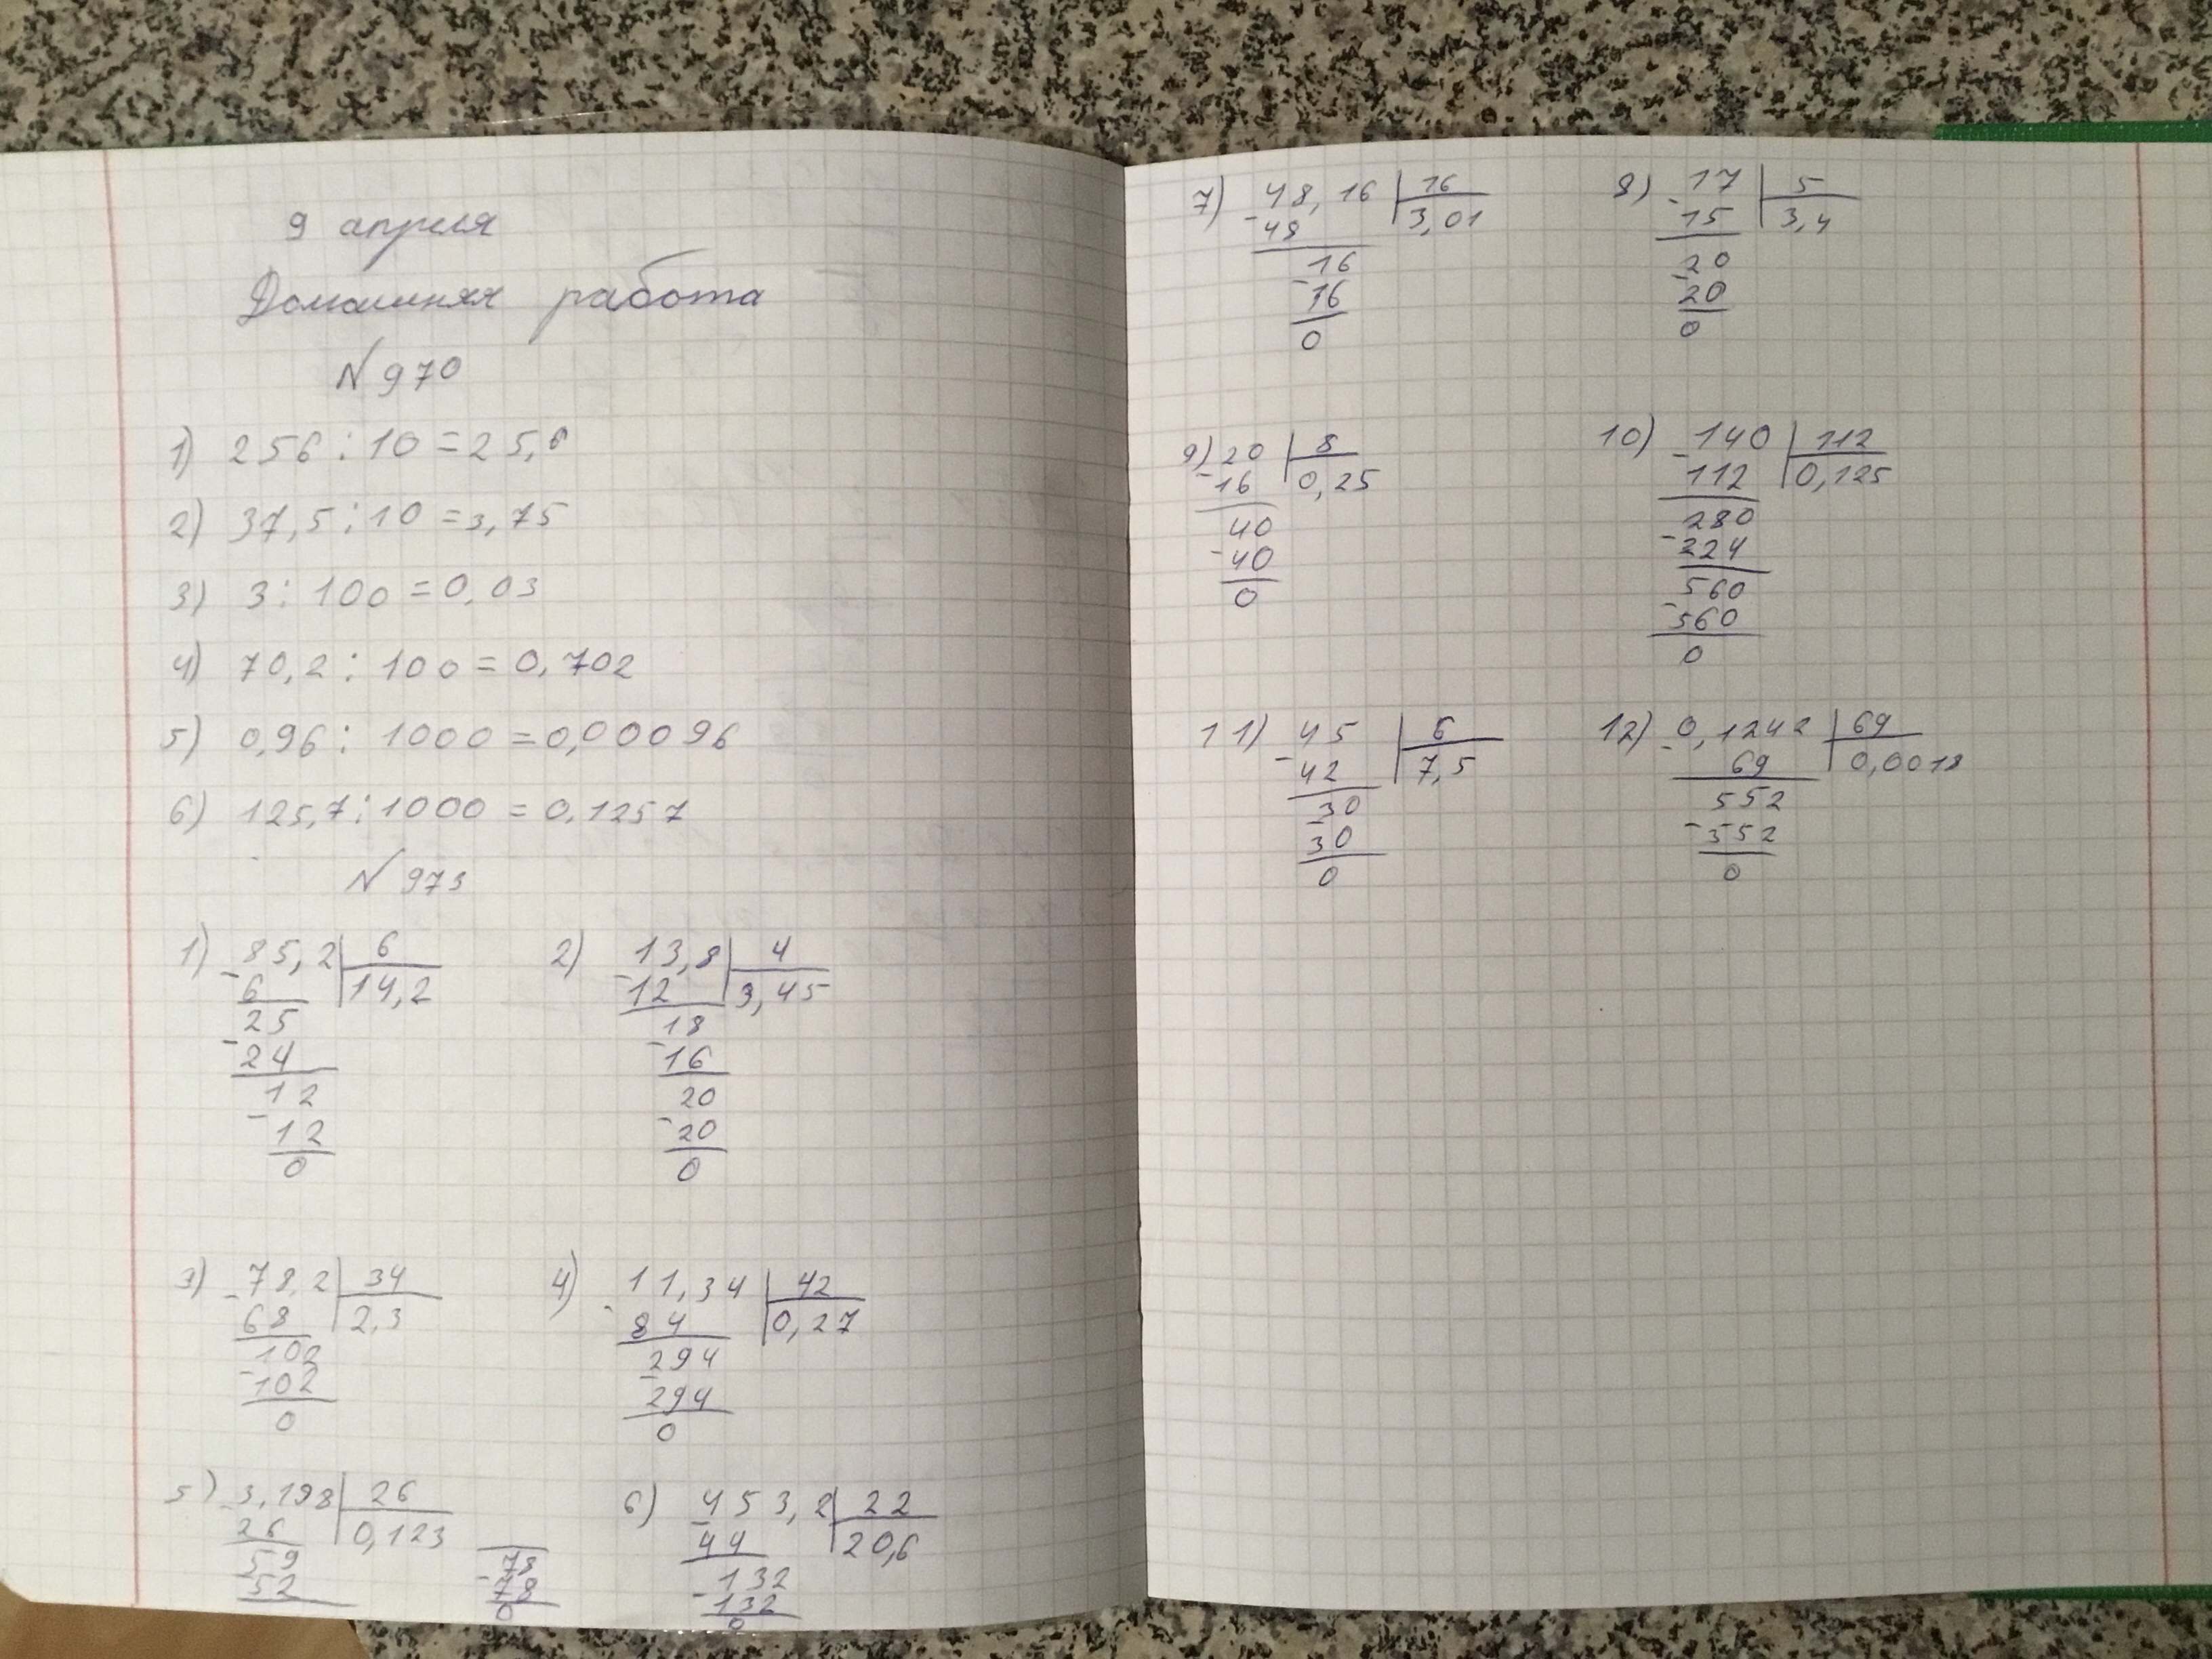 9 апреля
Домашняя работа
N 970
1) 256 : 10 = 25,6
2) 37,5 : 10 = 3,75
3) 3 : 100 = 0,03
4) 70,2 : 100 = 0,702
5) 0,96 : 1000 = 0,00096
6) 125,7 : 1000 = 0,1257
N 973
1) 85,2 | 6
- 6 | 14,2
25
- 24
12
- 12
0
2) 13,8 | 4
- 12 | 3,45
18
- 16
20
- 20
0
3) - 78,2 | 34
68 | 2,3
102
- 102
0
4) 11,34 | 42
- 84 | 0,27
294
- 294
0
5) - 3,198 | 26
26 | 0,123
59
52
78
- 78
0
6) - 453,2 | 22
44 | 20,6
132
- 132
0
7) - 48,16 | 16
48 | 3,01
16
- 16
0
8) - 17 | 5
15 | 3,4
20
- 20
0
9) 20 | 8
- 16 | 0,25
40
- 40
0
10) - 140 | 112
112 | 0,125
280
- 224
560
- 560
0
11) 45 | 6
- 42 | 7,5
30
- 30
0
12) - 0,1242 | 69
69 | 0,0018
552
- 552
0